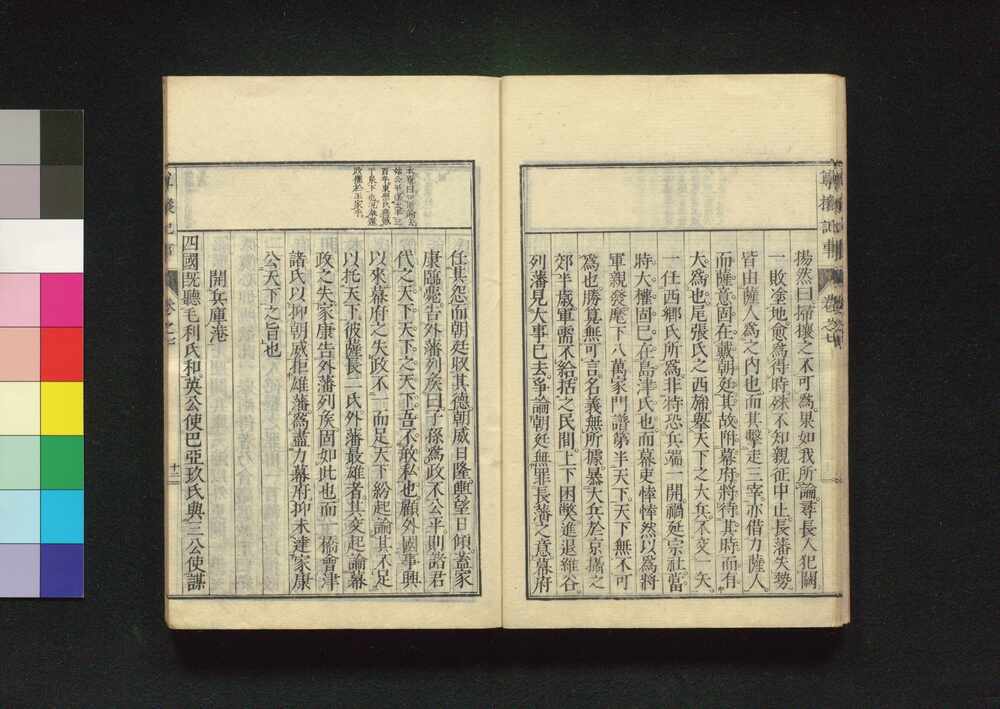 揚然曰掃攘之不可爲果如我所論尋長人犯闕
一敗塗地愈爲得時殊不知親征中止長藩失勢
皆由薩人爲之内也而其擊走三宰亦借力薩人
而薩意固在戴朝廷其故附幕府將待其時而有
大爲也尾張氏之西旆擧天下之大兵不交一矢
一任西鄉氏所爲非特恐兵端一開禍延宗社當
時大權固已在島津氏也而幕吏悻悻然以爲將
軍親發麾下八萬家門譜第半天下天下無不可
爲也勝算無可言名義無所據暴大兵於京攝之
郊半歲軍需不給括之民間上下困弊進退維谷
列藩見大事已去爭論朝廷無罪長藩之意幕府
任其怨而朝廷收其德朝威日隆輿望日傾蓋家
康臨薨告外藩列侯曰子孫爲政不公平則諸君
代之天下天下之天下吾不敢私也顧外國事興
以來幕府之失政不一而足天下紛起論其不足
以托天下彼薩長二氏外藩最雄者其交起論幕
政之失家康告外藩列侯固如此也而一橋會津
諸氏以抑朝威拒雄藩爲盡力幕府抑未達家康
公天下之旨也
開兵庫港
四國既聽毛利氏和英公使巴亞玖氏與三公使謀
尊攘記事
卷之七
十二